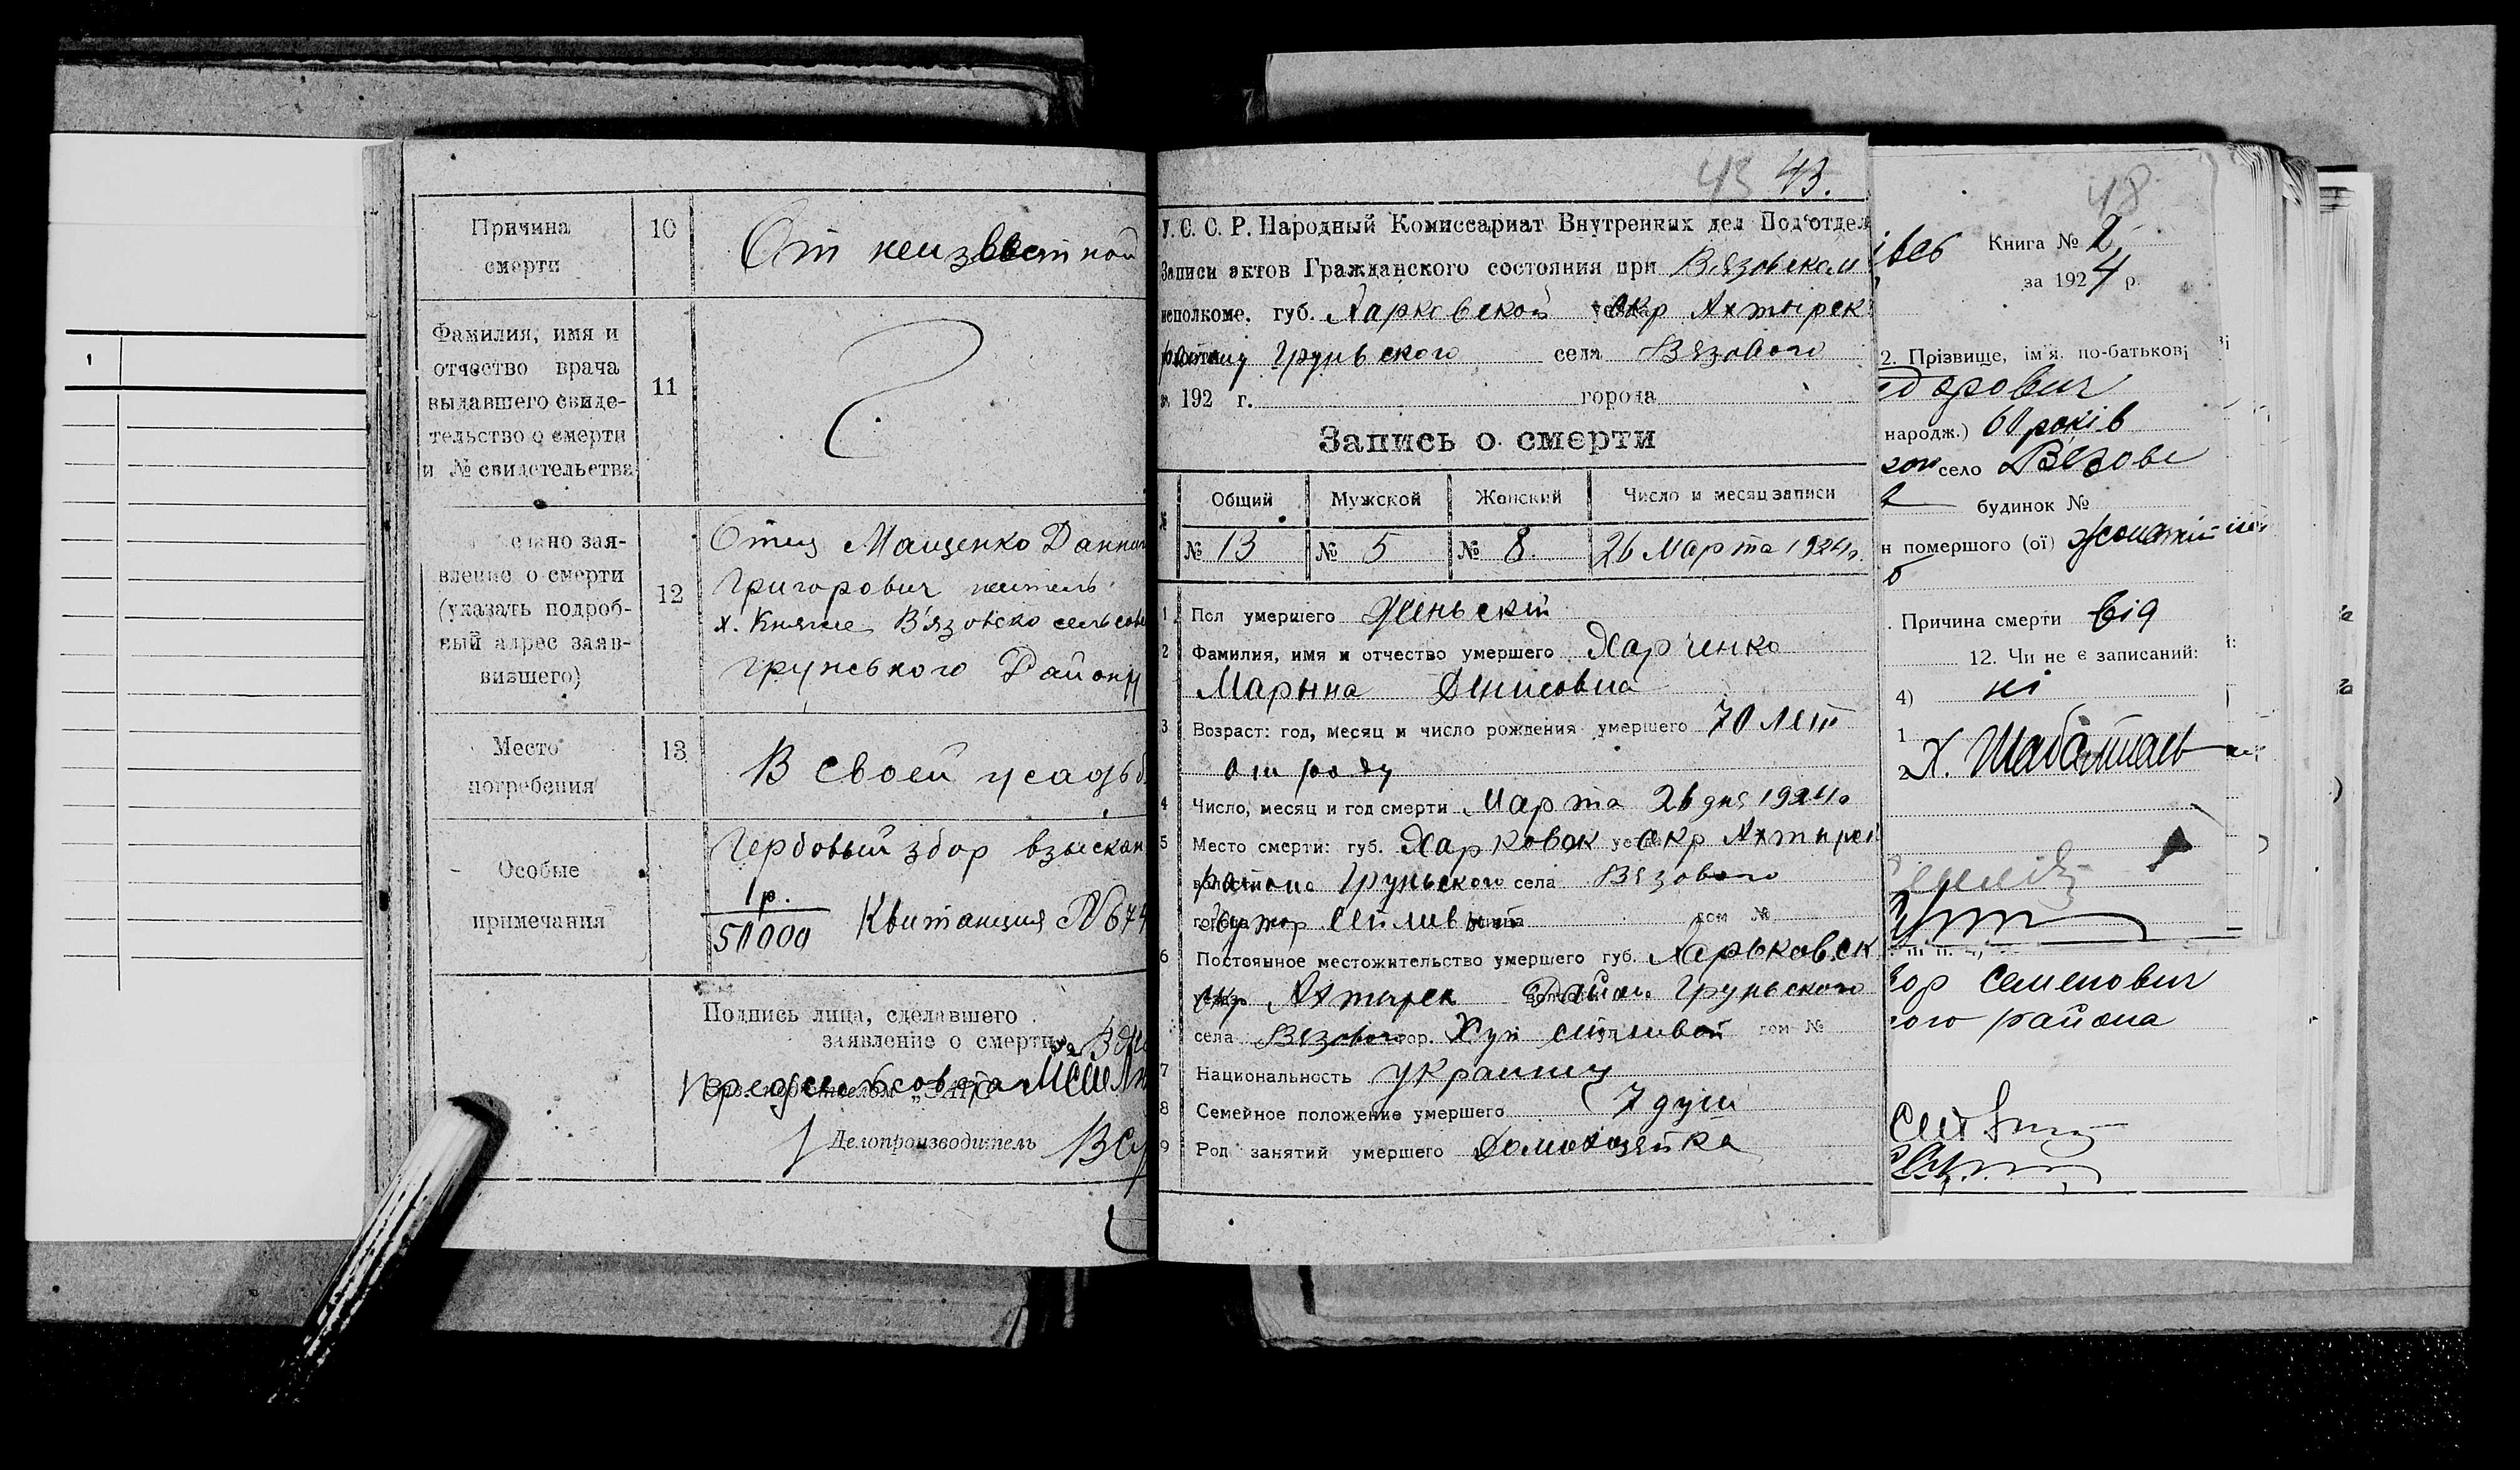 1
Причина
смерти
10
От неизвестной
Фамилия, имя и
отчество врача
выдавшего свиде-
тельство о смерти
и № свидетельства
11
?
елано зая-
вление о смерти
(указать подроб-
ный адрес заяв-
вившего)
12
Отец Мащенко
Григорович житель
х. Княже Вязовско сельсове
грунського Району
Место
погребения
13
В своей усадьб
Особые
примечания
Гербовый збор взыскан
1 р.
50000
Квитанция № 674
Подпись лица, сделавшего
заявление о смерти
Делопроизводитель
43 43.
У. С. С. Р. Народный Комиссариат Внутренних дел Под'отдел
Записи актов Гражданского состояния при Вязовском
исполкоме. губ. Харковской окр Ахтырск
Груньского села Вязового
192 г. города
Запись о смерти
Общий Мужской Женский Число и месяц записи
№ 13 № 5 № 8 26 Марта 1924г.
1 Пол умершего Женьский
2 Фамилия, имя и отчество умершего Харченко
Марына Денисовна
3 Возраст: год, месяц и число рождения умершего 70 лет
от роду
4 Число, месяц и год смерти Марта 26 дня 1924г
5 Место смерти: губ. Харковск окр Ахтирск
района Груньского села Вязового
хутор дом №
6 Постоянное местожительство умершего губ. Харьковск
окр Ахтырск Район Груньского
села Вязового гор. Хут дом №
7 Национальность
8 Семейное положение умершего 7 душ
9 Род занятий умершего Домохозяйка
48
Книга № 2
за 1924 р.
2. Прізвище, ім'я, по-батькові
дорович
народж.) 60 років
село Вязове
будинок №
н помершого (ої)
. Причина смерти від
12. Чи не є записаний:
4) ні
1
2
ор Семенович
ого района